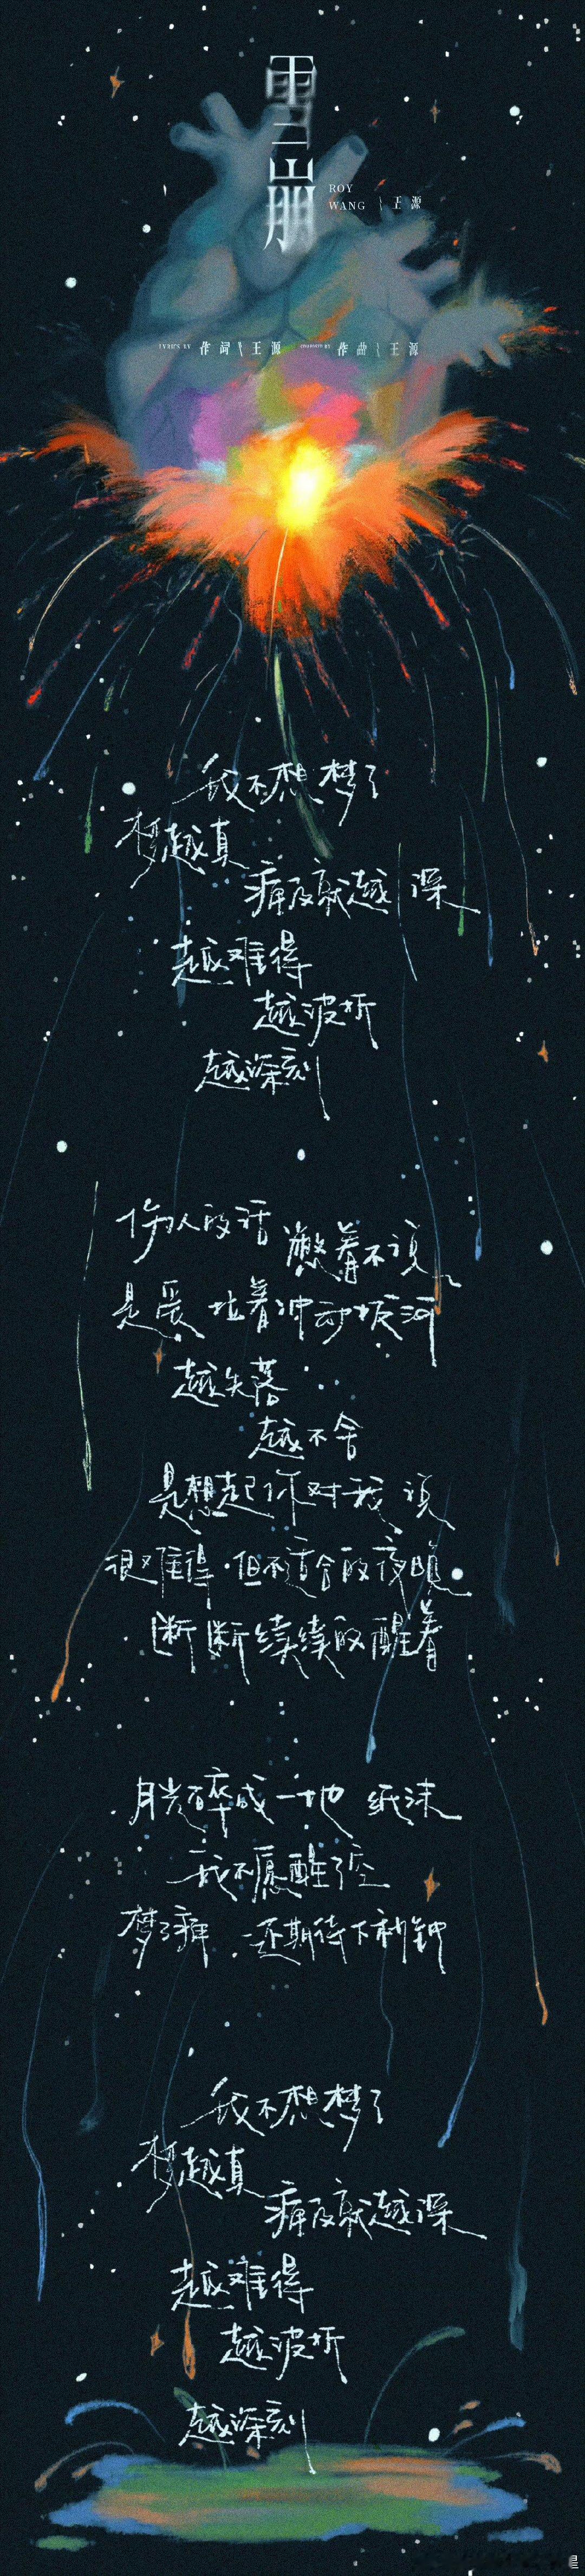 雪崩
ROY
WANG 王源
LYRICS BY 作词 王源 COMPOSED BY 作曲 王源
我不想梦了
梦越真
痛及就越深
越难得
越波折
越深刻
伤人的话 憋着不说
是爱 拉着冲动拔河
越失落
越不舍
是想起你对我说
很难得·但不适合的夜晚
断断续续的醒着
月光碎成一地 纸沫
我不愿醒了空
梦了痛 还期待下秒钟
我不想梦了
梦越真
痛及就越深
越难得
越波折
越深刻